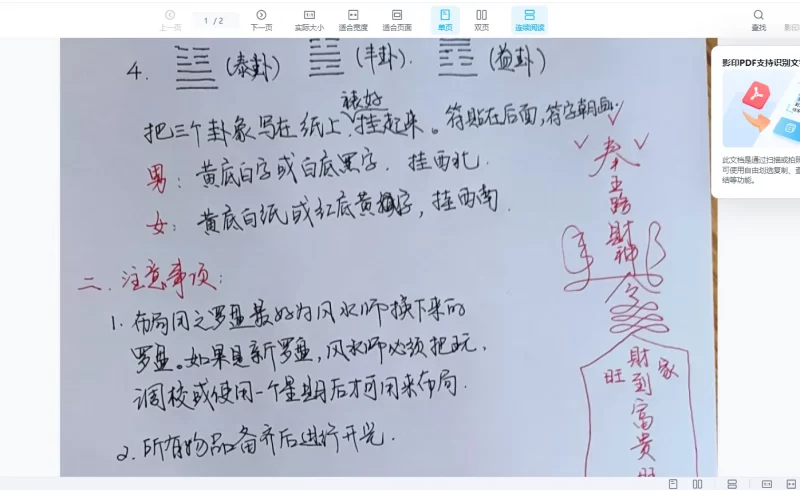 上一页
1 / 2
下一页
实际大小
适合宽度
适合页面
单页
双页
连续阅读
查找
影印
影印PDF支持识别文
此文档是通过扫描或拍照
可使用自由划选复制、查
结等功能。
4. (泰卦) (丰卦). (益卦)
裱好
把三个卦象写在纸上,挂起来。符贴在后面,符字朝画;
男:黄底白字或白底黑字.挂西北.
女:黄底白纸或红底黄字,挂西南.
二.注意事项:
1.布局用之罗盘最好为风水师换下来的
罗盘。如果是新罗盘,风水师必须把玩.
调校或使用一个星期后才可用来布局.
2.所有物品备齐后进行开光.
奉
五
路
財
神
旺 財 家
到
富
貴